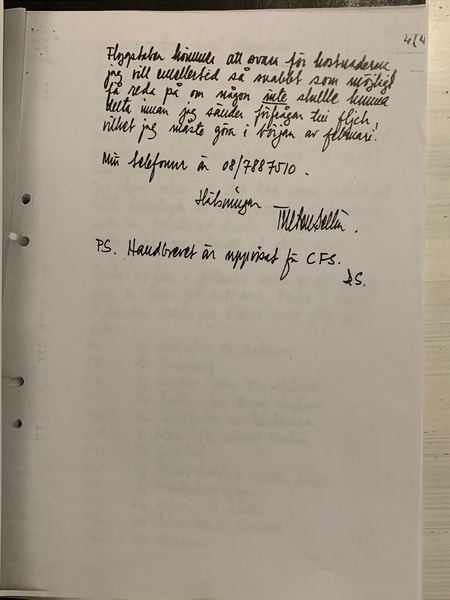 4/4
Flygstaben kommer att svara för kostnaderna,
jag vill emellertid så snabbt som möjligt
få reda på om någon inte skulle kunna
delta innan jag sänder förfrågan till fljch,
vilket jag måste göra i början av februari!
Min telefonnr är 08/7887510.
Hälsningar
P.S. Handbrevet är uppvisat för CFS.
DS.